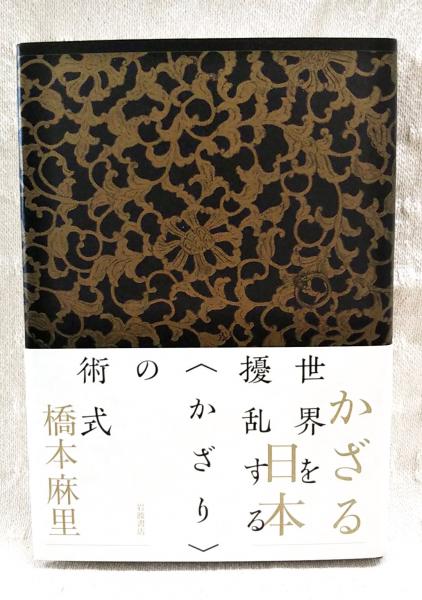 かざる
日本
世界を
擾乱する
〈かざり〉
の
術式
橋本麻里
岩波書店